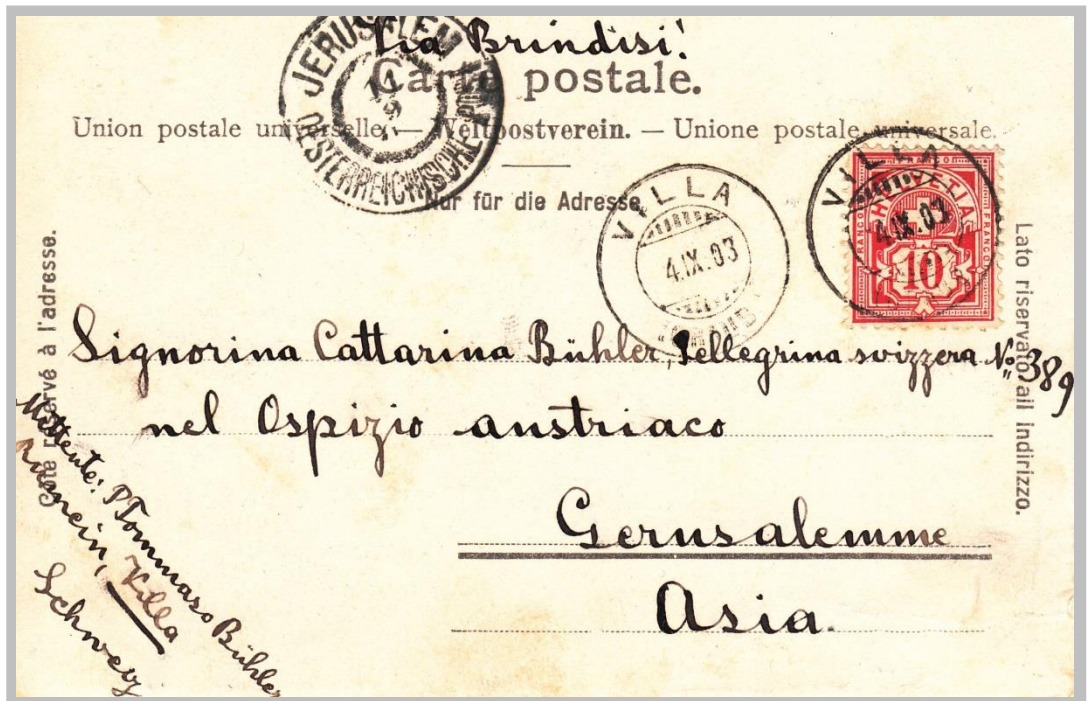 Via Brindisi!
Carte postale.
Union postale universelle. — Weltpostverein. — Unione postale universale.
Nur für die Adresse
JERUSALEM
OESTERREICHISCHE POST
VILLA
4.IX.03
VILLA
4.IX.03
FRANCO HELVETIA FRANCO
10
Côté réservé à l'adresse.
Lato riservato all indirizzo.
Signorina Cattarina Bühler, Pellegrina svizzera No. 389
nel Ospizio austriaco
Gerusalemme
Asia.
Mittente: P Tommaso Bühler
Villa
Schweiz